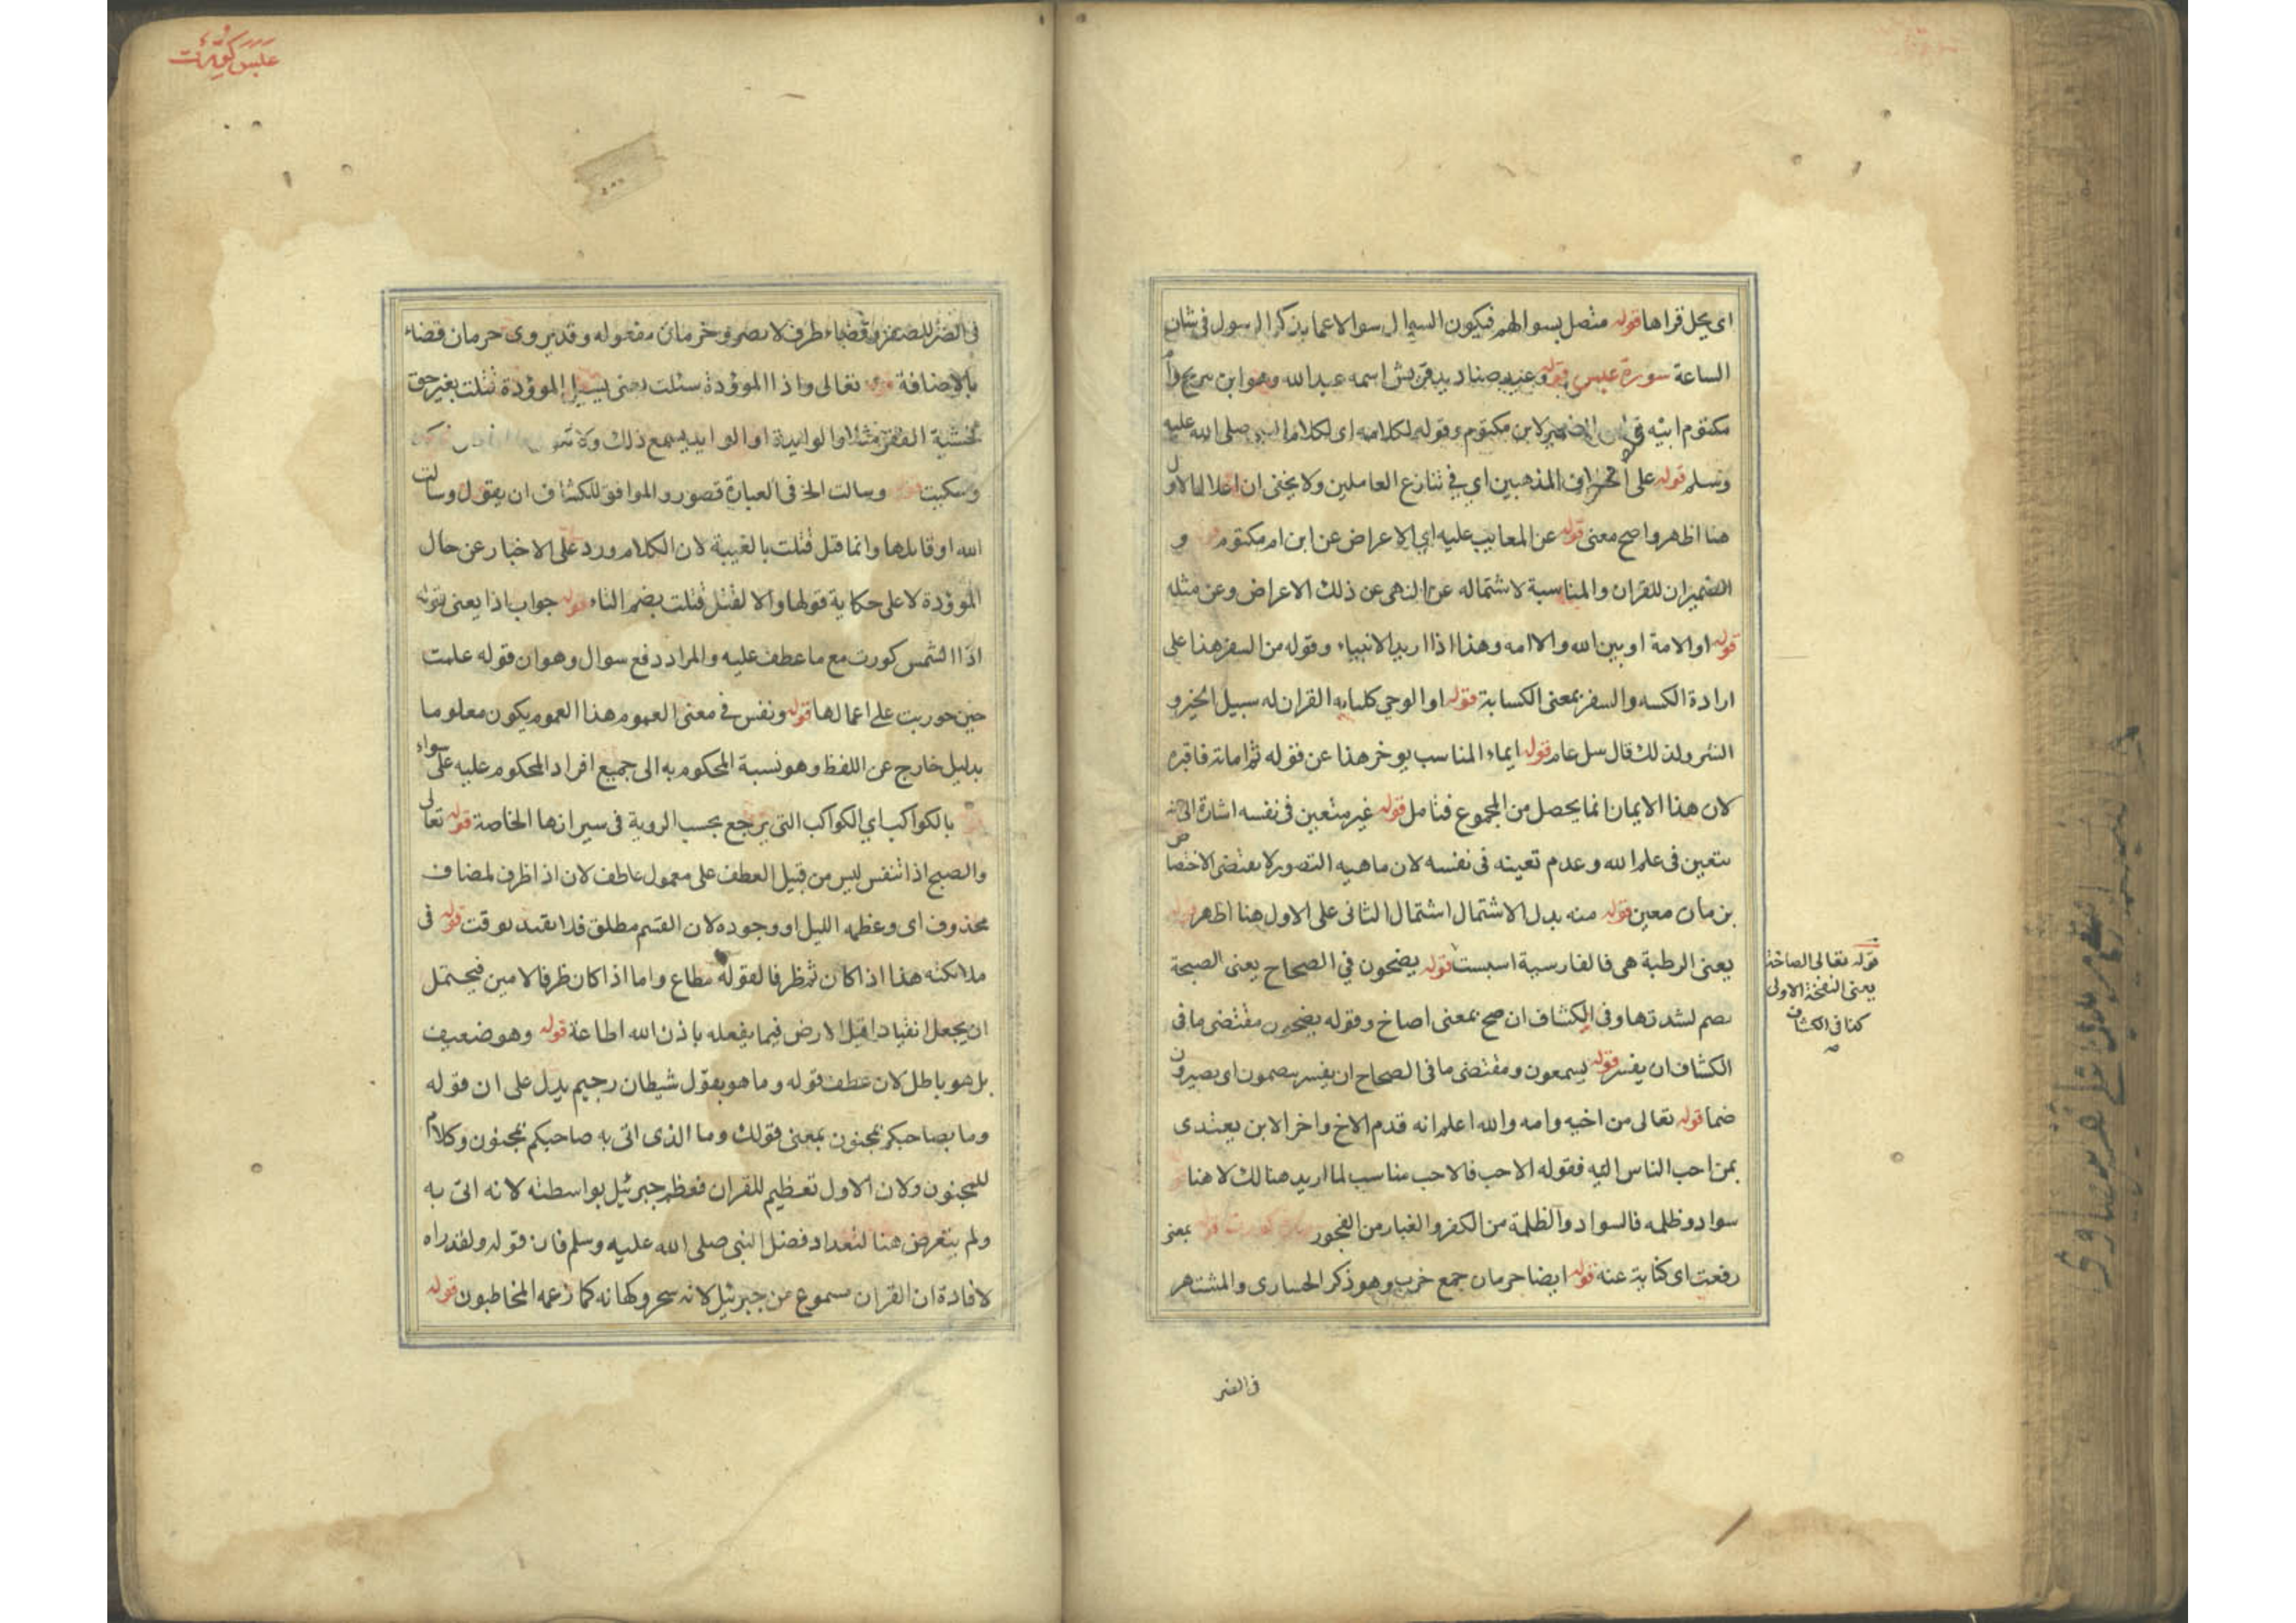 اى محل قراها قوله متصل بسوالهم فيكون السوال سوالا عما بذكر الرسول فى شان
الساعة سورة عبس قوله وعنده صناديد قريش اسمه عبد الله وهو ابن سريح وام
مكتوم ابيه الضمير لابن مكتوم وقوله لكلامه اى لكلام النبى صلى الله عليه
وسلم قوله على المذهبين اي في تنازع العاملين ولا يخفى ان اعلال الاول
هنا اظهر واصح معنى قوله عن المعاتب عليه اي الاعراض عن ابن ام مكتوم و
الضميران للقران والمناسبة لاشتماله عن النهى عن ذلك الاعراض وعن مثله
قوله او الامة او بين الله والامه وهذا اذا اريد الانبياء وقوله من السفر هذا على
ارادة الكسه والسفر بمعنى الكسابة قوله او الوحي القران له سبيل الخير و
الشر ولذلك قال سل عام قوله ايماء المناسب يوخر هذا عن قوله ثم اماته فاقبره
لان هذا الايمان انما يحصل من المجموع فتامل قوله غير متعين فى نفسه اشارة الى انه
متعين فى علم الله وعدم تعينه فى نفسه لان ماهيه التصور لا يقتضى الاختصاص
بزمان معين قوله منه بدل الاشتمال اشتمال الثانى على الاول هنا اظهر قوله
يعنى الرطبة هى فالفارسية اسبست قوله يضحون في الصحاح يعنى الصيحة
تصم لشدتها وفى الكشاف ان صح بمعنى اصاخ وقوله يضحون مقتضى ما فى
الكشاف ان يفسر قوله يسمعون ومقتضى ما فى الصحاح ان يفسر بيصمون اى يصيرون
ضما قوله تعالى من اخيه وامه والله اعلم انه قدم الاخ واخر الابن يعتدى
بمن احب الناس اليه فقوله الاحب فالاحب مناسب لما اريد هنالك لا هنا
سواد وظلمه فالسواد والظلمة من الكفر والغبار من الفجور قوله بمعنى
رفعت اى كناية عنه قوله ايضا حرمان جمع خرب وهو ذكر الحبارى والمشتهر
قوله تعالى الصاخة
يعنى النفخة الاولى
كذا فى الكشاف
فى الضر
عبس كورت
وقضاء ظرف لابصر وخرمان مفعوله وقد يروى خرمان قضاء
بالاضافة قوله تعالى واذا الموؤدة سئلت يعنى يسئل الموؤدة قتلت بغير حق
لخشية الفقر مثلا والوالدة او الوالد يسمع ذلك
وسكيت قوله وسالت الخ فى العبارة قصور والموافق للكشاف ان يقول وسالت
الله او قابلها وانما قتل قتلت بالغيبة لان الكلام ورد على الاخبار عن حال
الموؤدة لا على حكاية قولها والا لقيل قتلت بضم التاء قوله جواب اذا يعنى قوله
اذا الشمس كورت مع ما عطف عليه والمراد دفع سوال وهو ان قوله علمت
حين حوربت على اعمالها قوله ونفس في معنى العموم هذا العموم يكون معلوما
بدليل خارج عن اللفظ وهو نسبة المحكوم به الى جميع افراد المحكوم عليه على سواء
بالكواكب اي الكواكب التى يرجع بحسب الروية فى سيرانها الخاصة قوله تعالى
والصبح اذا تنفس ليس من قبيل العطف على معمول عاطف لان اذا ظرف لمضاف
محذوف اى وعظمه الليل او وجوده لان القسم مطلق فلا يقيد بوقت قوله فى
ملائكته هذا اذا كان ثم ظرفا لقوله مطاع واما اذا كان ظرفا لامين فيحتمل
ان يجعل انقياد اهل الارض فيما يفعله باذن الله اطاعة قوله وهو ضعيف
بل هو باطل لان عطف قوله وما هو بقول شيطان رجيم يدل على ان قوله
وما بصاحبكم بمجنون بمعنى قولك وما الذى اتى به صاحبكم بمجنون وكلام
للمجنون ولان الاول تعظيم للقران فعظم جبرئيل بواسطته لانه اتى به
ولم يتعرض هنا لتعداد فضل النبى صلى الله عليه وسلم فان قوله ولقد راه
لافادة ان القران مسموع من جبرئيل لانه سحر وكهانه كما زعمه المخاطبون قوله